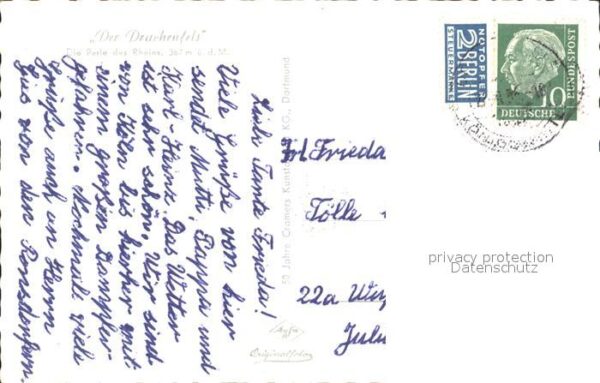 „Der Drachenfels"
Die Perle des Rheins, 321 m ü. d. M.
Liebe Tante Frieda!
Viele Grüße von hier
sendet Mutti, Pappa und
Karl-Heinz. Das Wetter
ist sehr schön. Wir sind
von Köln bis hierher mit
einem großen Dampfer
gefahren. Nochmals viele
Grüße auch an Herrn
Gus von den Ronsdorfern.
50 Jahre Cramers Kunst KG., Dortmund
Originalfoto
Frl. Frieda
Tölle
22a
Jul
NOTOPFER
2 BERLIN
STEUERMARKE
DEUTSCHE
BUNDESPOST
10
privacy protection
Datenschutz